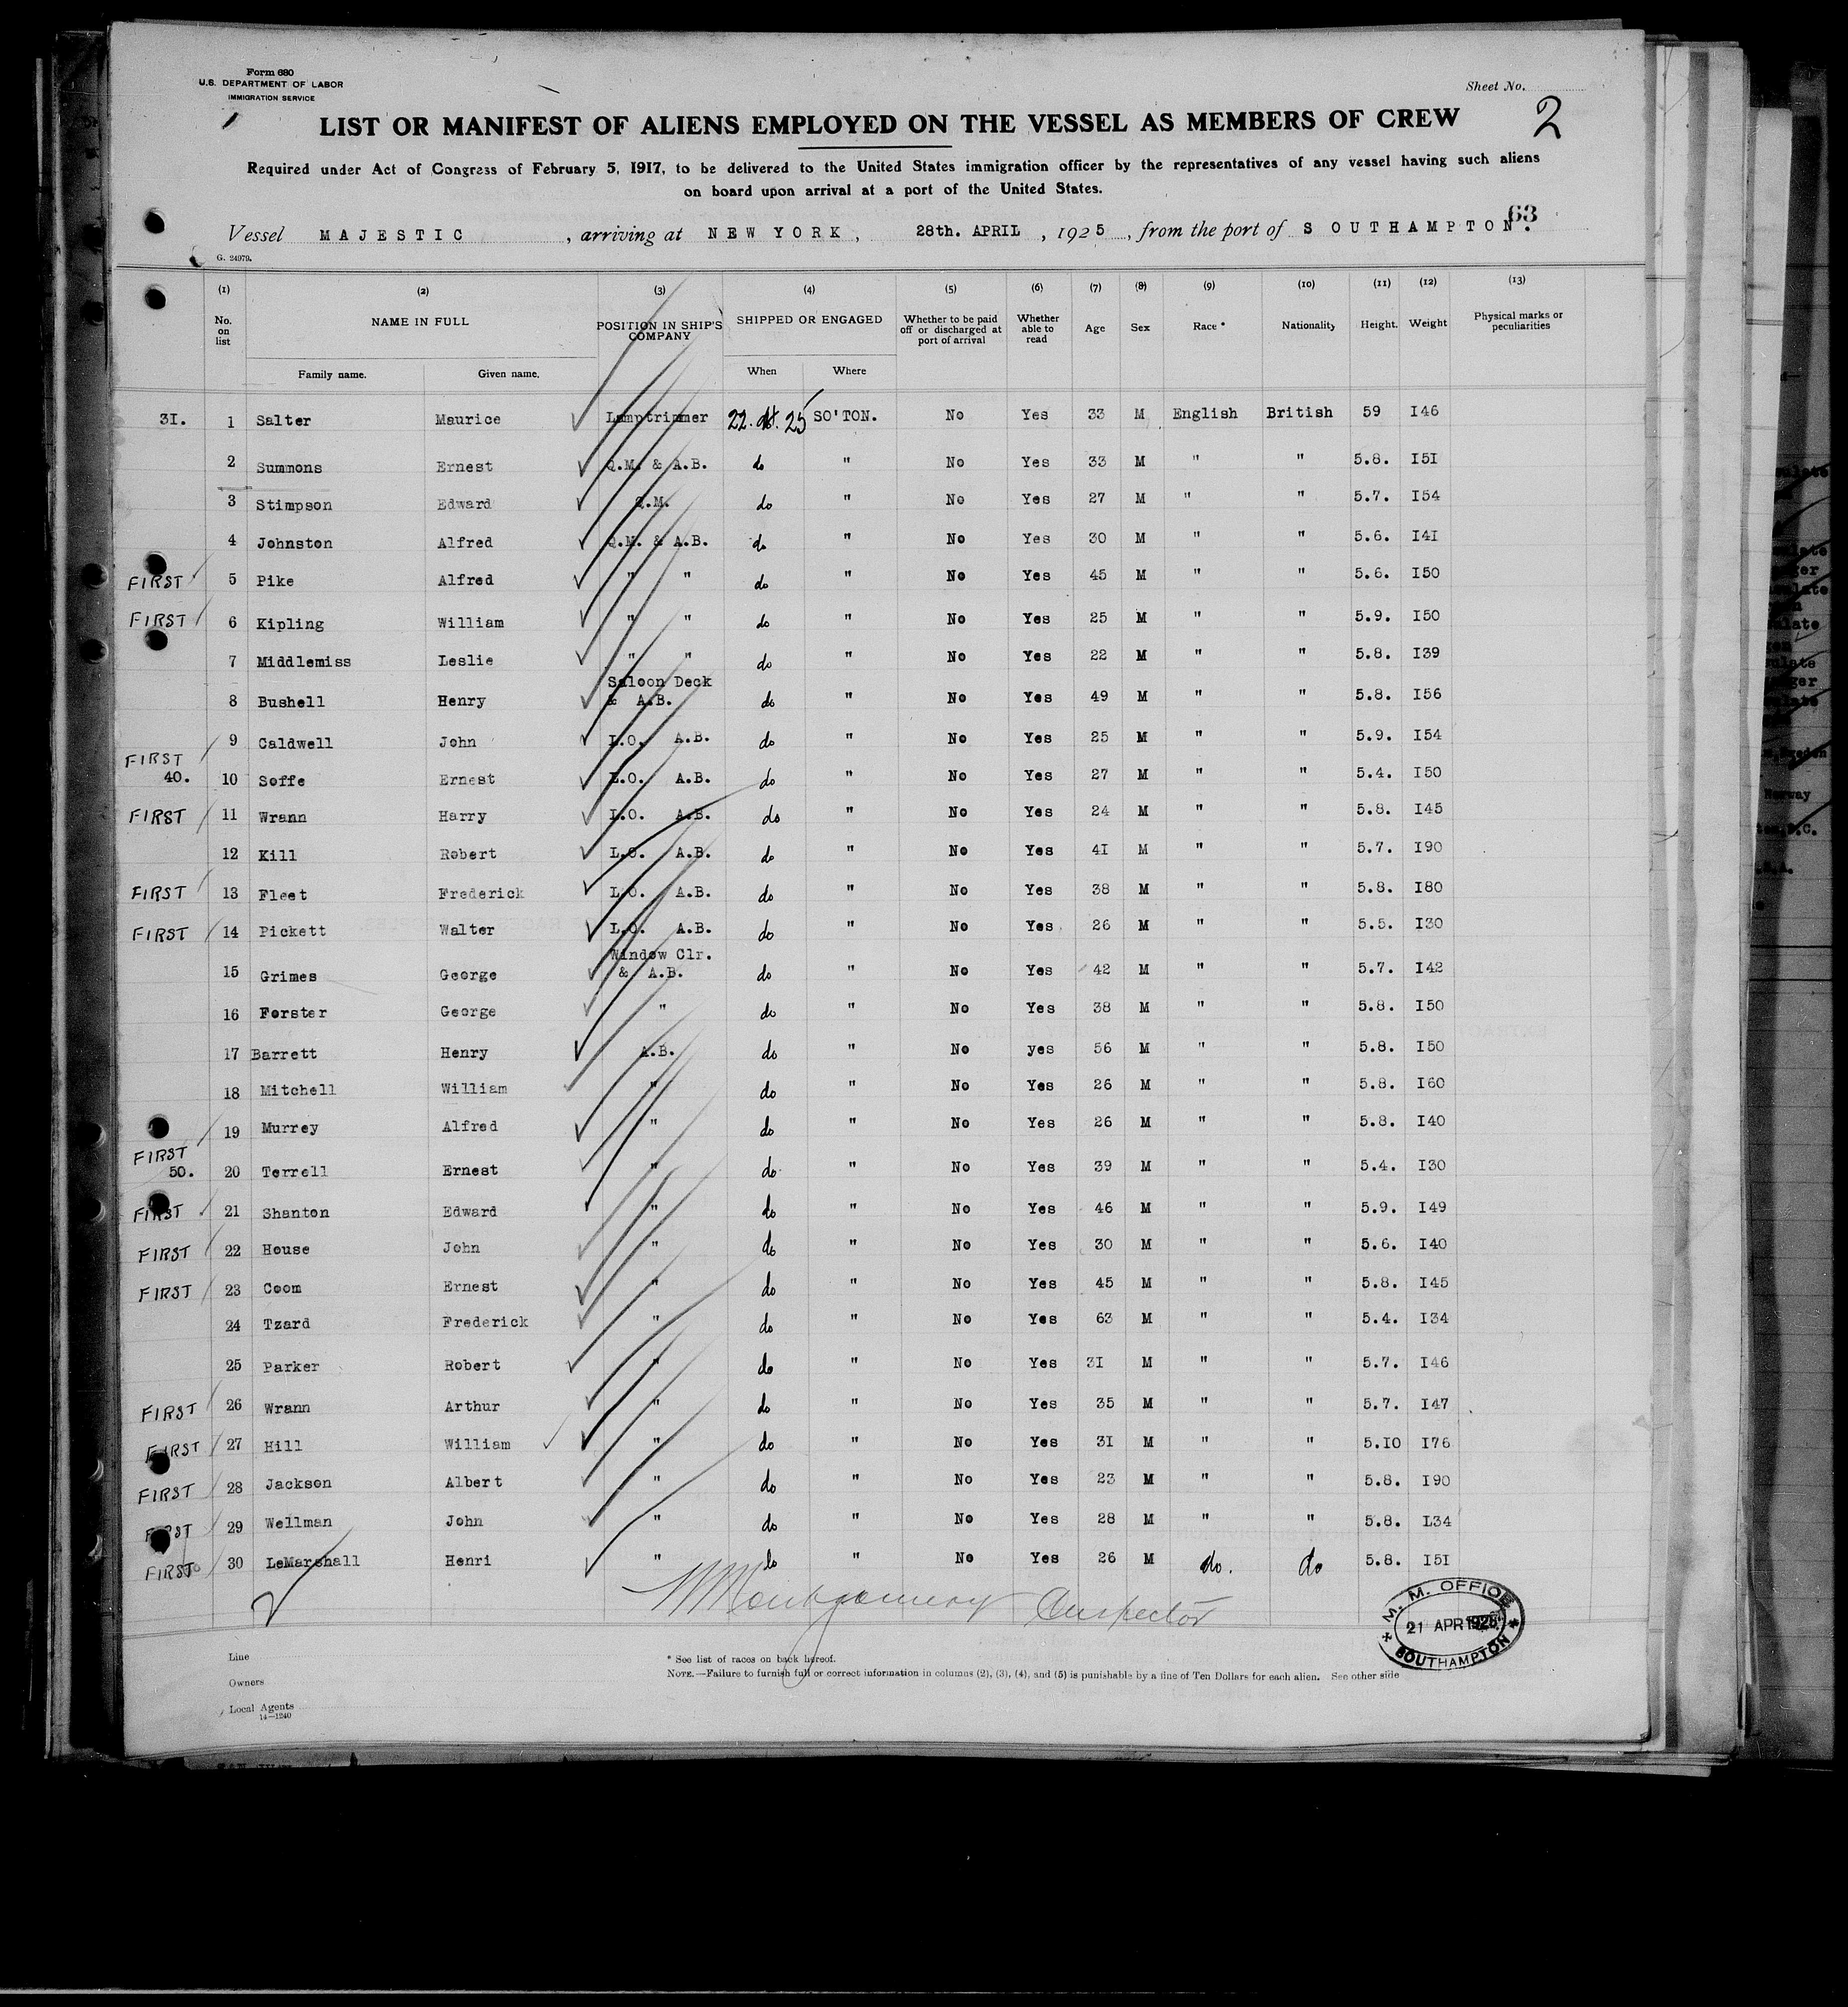 Form 680
U.S. DEPARTMENT OF LABOR
IMMIGRATION SERVICE
Sheet No.
2
LIST OR MANIFEST OF ALIENS EMPLOYED ON THE VESSEL AS MEMBERS OF CREW
Required under Act of Congress of February 5, 1917, to be delivered to the United States immigration officer by the representatives of any vessel having such aliens
on board upon arrival at a port of the United States.
63
Vessel MAJESTIC, arriving at NEW YORK, 28th. APRIL, 1925, from the port of SOUTHAMPTON.
G. 24979.
(1) (2) (3) (4) (5) (6) (7) (8) (9) (10) (11) (12) (13)
No. on list NAME IN FULL POSITION IN SHIP'S COMPANY SHIPPED OR ENGAGED Whether to be paid off or discharged at port of arrival Whether able to read Age Sex Race * Nationality Height. Weight Physical marks or peculiarities
Family name. Given name. When Where
31. 1 Salter Maurice Lamptrimmer 22. 4. 25 SO'TON. No Yes 33 M English British 59 I46
2 Summons Ernest Q.M. & A.B. do " No Yes 33 M " " 5.8. I5I
3 Stimpson Edward Q.M. do " No Yes 27 M " " 5.7. I54
4 Johnston Alfred Q.M. & A.B. do " No Yes 30 M " " 5.6. I4I
FIRST 5 Pike Alfred " " do " No Yes 45 M " " 5.6. I50
FIRST 6 Kipling William " " do " No Yes 25 M " " 5.9. I50
7 Middlemiss Leslie " " do " No Yes 22 M " " 5.8. I39
8 Bushell Henry Saloon Deck & A.B. do " No Yes 49 M " " 5.8. I56
FIRST 9 Caldwell John L.O. A.B. do " No Yes 25 M " " 5.9. I54
40. 10 Soffe Ernest L.O. A.B. do " No Yes 27 M " " 5.4. I50
FIRST 11 Wrann Harry L.O. A.B. do " No Yes 24 M " " 5.8. I45
12 Kill Robert L.O. A.B. do " No Yes 4I M " " 5.7. I90
FIRST 13 Fleet Frederick L.O. A.B. do " No Yes 38 M " " 5.8. I80
FIRST 14 Pickett Walter L.O. A.B. do " No Yes 26 M " " 5.5. I30
15 Grimes George Window Clr. & A.B. do " No Yes 42 M " " 5.7. I42
16 Forster George " do " No Yes 38 M " " 5.8. I50
17 Barrett Henry A.B. do " No yes 56 M " " 5.8. I50
18 Mitchell William " do " No Yes 26 M " " 5.8. I60
FIRST 19 Murrey Alfred " do " No Yes 26 M " " 5.8. I40
50. 20 Terrell Ernest " do " No Yes 39 M " " 5.4. I30
FIRST 21 Shanton Edward " do " No Yes 46 M " " 5.9. I49
FIRST 22 House John " do " No Yes 30 M " " 5.6. I40
FIRST 23 Coom Ernest " do " No Yes 45 M " " 5.8. I45
24 Tzard Frederick " do " No Yes 63 M " " 5.4. I34
25 Parker Robert " do " No Yes 3I M " " 5.7. I46
FIRST 26 Wrann Arthur " do " No Yes 35 M " " 5.7. I47
FIRST 27 Hill William " do " No Yes 3I M " " 5.I0 I76
FIRST 28 Jackson Albert " do " No Yes 23 M " " 5.8. I90
FIRST 29 Wellman John " do " No Yes 28 M " " 5.8. L34
FIRST 30 LeMarshall Henri " do " No Yes 26 M do. do 5.8. I5I
Montgomery Inspector
M. M. OFFICE
21 APR 1925
SOUTHAMPTON
Line
Owners
Local Agents
14—1240
* See list of races on back hereof.
NOTE.—Failure to furnish full or correct information in columns (2), (3), (4), and (5) is punishable by a fine of Ten Dollars for each alien. See other side